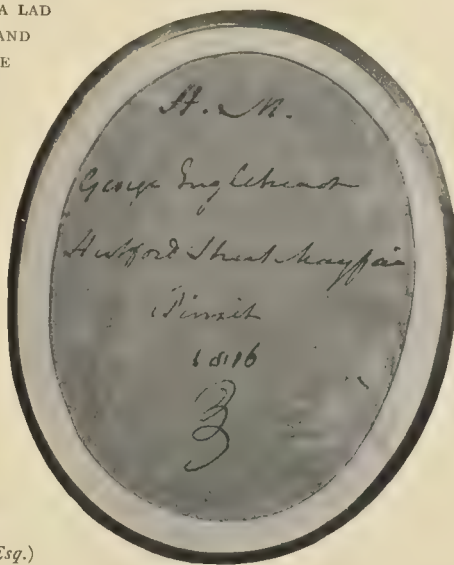 A LAD
AND
E
H. M.
George Engleheart
Hertford Street Mayfair
Pinxit
1816
Esq.)